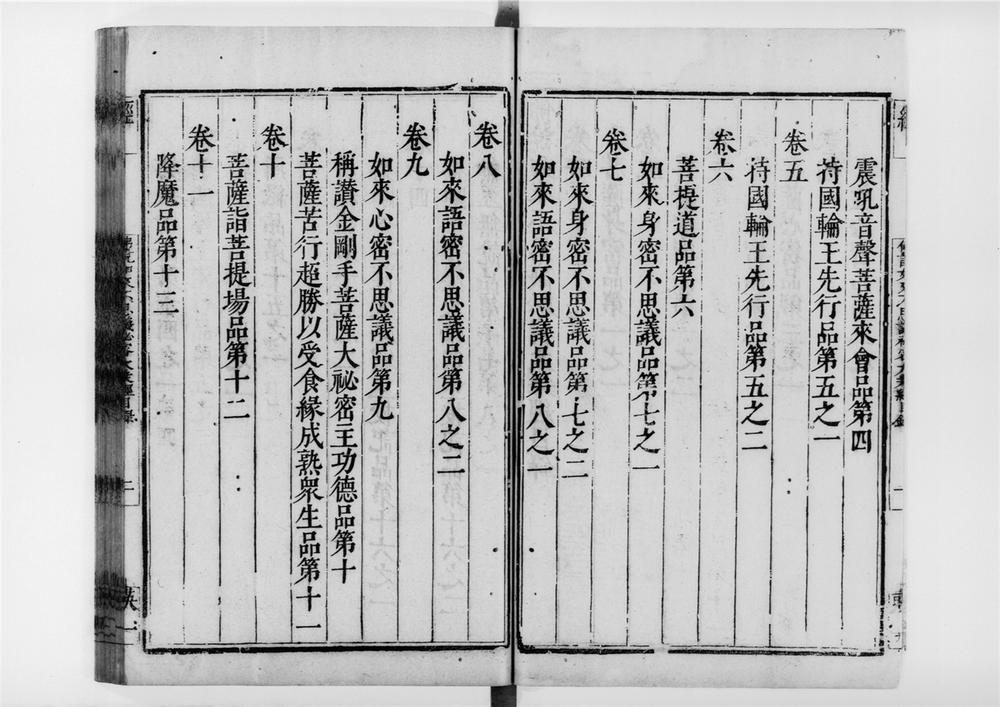 震吼音聲菩薩來會品第四
持國輪王先行品第五之一
卷五
持國輪王先行品第五之二
卷六
菩提道品第六
如來身密不思議品第七之一
卷七
如來身密不思議品第七之二
如來語密不思議品第八之一
卷八
如來語密不思議品第八之二
卷九
如來心密不思議品第九
稱讃金剛手菩薩大祕密主功德品第十
菩薩苦行超勝以受食緣成熟衆生品第十一
卷十
菩薩詣菩提場品第十二
卷十一
降魔品第十三